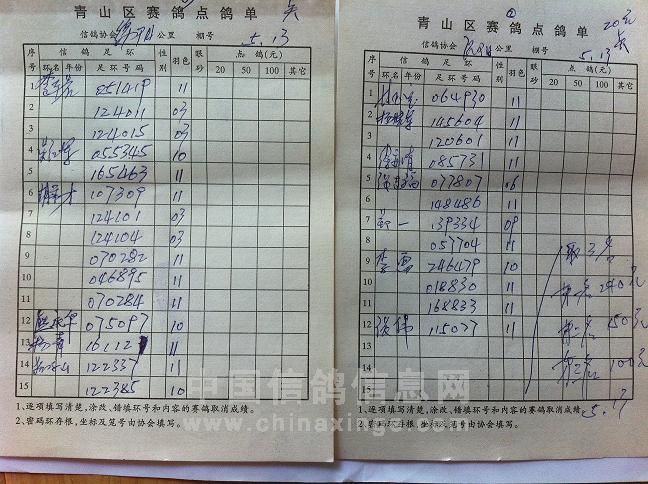 青山区赛鸽点鸽单
信鸽协会 公里 棚号 5.13
序号 信鸽足环 性别 羽色 眼砂 点鸽(元)
环名 年份 足环号码 20 50 100 其它
1 051419 11
2 124011 03
3 124015 03
4 055345 10
5 165463 11
6 107309 11
7 124101 03
8 124104 03
9 070282 11
10 046895 11
11 070284 11
12 075097 10
13 16112 11
14 122337 11
15 122385 10
1、逐项填写清楚,涂改、错填环号和内容的赛鸽取消成绩。
2、密码环存根,坐标及笼号由协会填写。
青山区赛鸽点鸽单 20元
② 
信鸽协会 公里 棚号 5.13
序号 信鸽足环 性别 羽色 眼砂 点鸽(元)
环名 年份 足环号码 20 50 100 其它
1 064930 11
2 145604 11
3 120601 11
4 085731 11
5 077807 06
6 148486 11
7 139334 09
8 053704 11 取3名
9 李 246479 10
10 018830 11 第一名 240元
11 168833 11
12 张伟 115027 11 第二名 150元
13
14 第三名 100元
15
1、逐项填写清楚,涂改、错填环号和内容的赛鸽取消成绩。
2、密码环存根,坐标及笼号由协会填写。
5.17
中国信鸽信息网
www.chinaxinge.com